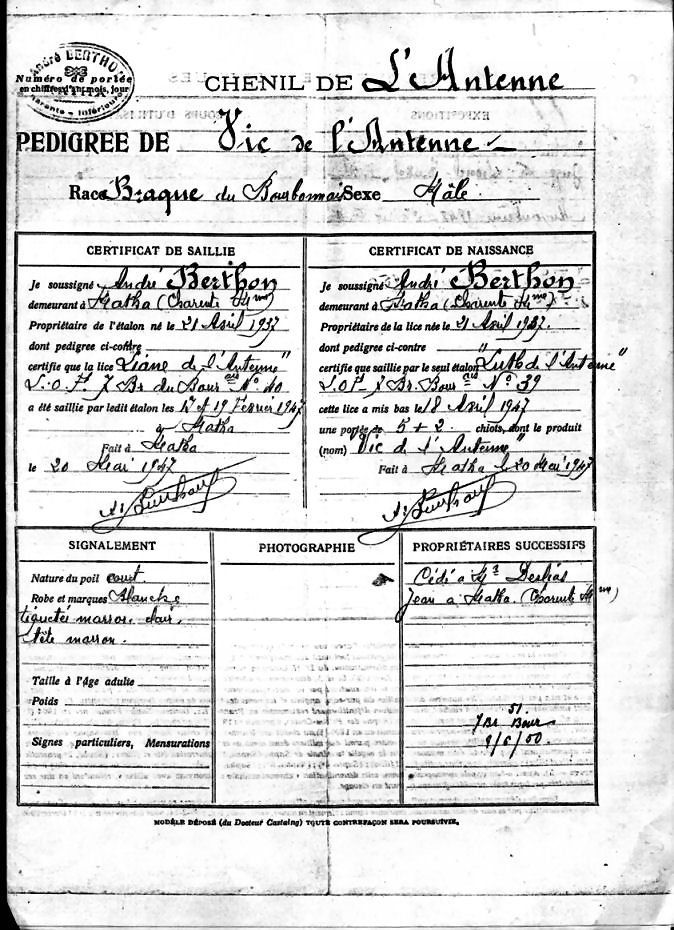 André BERTHON
MATHA
Charente - Inférieure
Numéro de portée
en chiffres d'an, mois, jour
CHENIL DE L'Antenne
PEDIGREE DE Vic de l'Antenne
Race Braque du Bourbonnais Sexe Mâle
CERTIFICAT DE SAILLIE
Je soussigné André Berthon
demeurant à Matha (Charente Mme)
Propriétaire de l'étalon né le 21 Avril 1937
dont pedigree ci-contre
certifie que la lice Liane de l'Antenne"
L.O.F. 7 Br du Bour ais N° 40
a été saillie par ledit étalon les 17 et 19 Février 1947
à Matha
Fait à Matha
le 20 Mai 1947
CERTIFICAT DE NAISSANCE
Je soussigné André Berthon
demeurant à Matha (Charente Mme)
Propriétaire de la lice née le 21 Avril 1937.
dont pedigree ci-contre
certifie que saillie par le seul étalon "Luth de l'Antenne"
L.O.F. 7 Br. Bour ais N° 39
cette lice a mis bas le 18 Avril 1947
une portée de 5 + 2 chiots, dont le produit
(nom) Vic de l'Antenne"
Fait à Matha le 20 Mai 1947
SIGNALEMENT
Nature du poil court.
Robe et marques Blanche
tiquetée marron clair,
tête marron.
Taille à l'âge adulte
Poids
Signes particuliers, Mensurations
PHOTOGRAPHIE
PROPRIÉTAIRES SUCCESSIFS
Cédé à Mr
Jean à Matha. (Charente Mme)
51
7 Br Bour
9/6/50.
MODÈLE DÉPOSÉ (du Docteur Castaing) TOUTE CONTREFAÇON SERA POURSUIVIE.